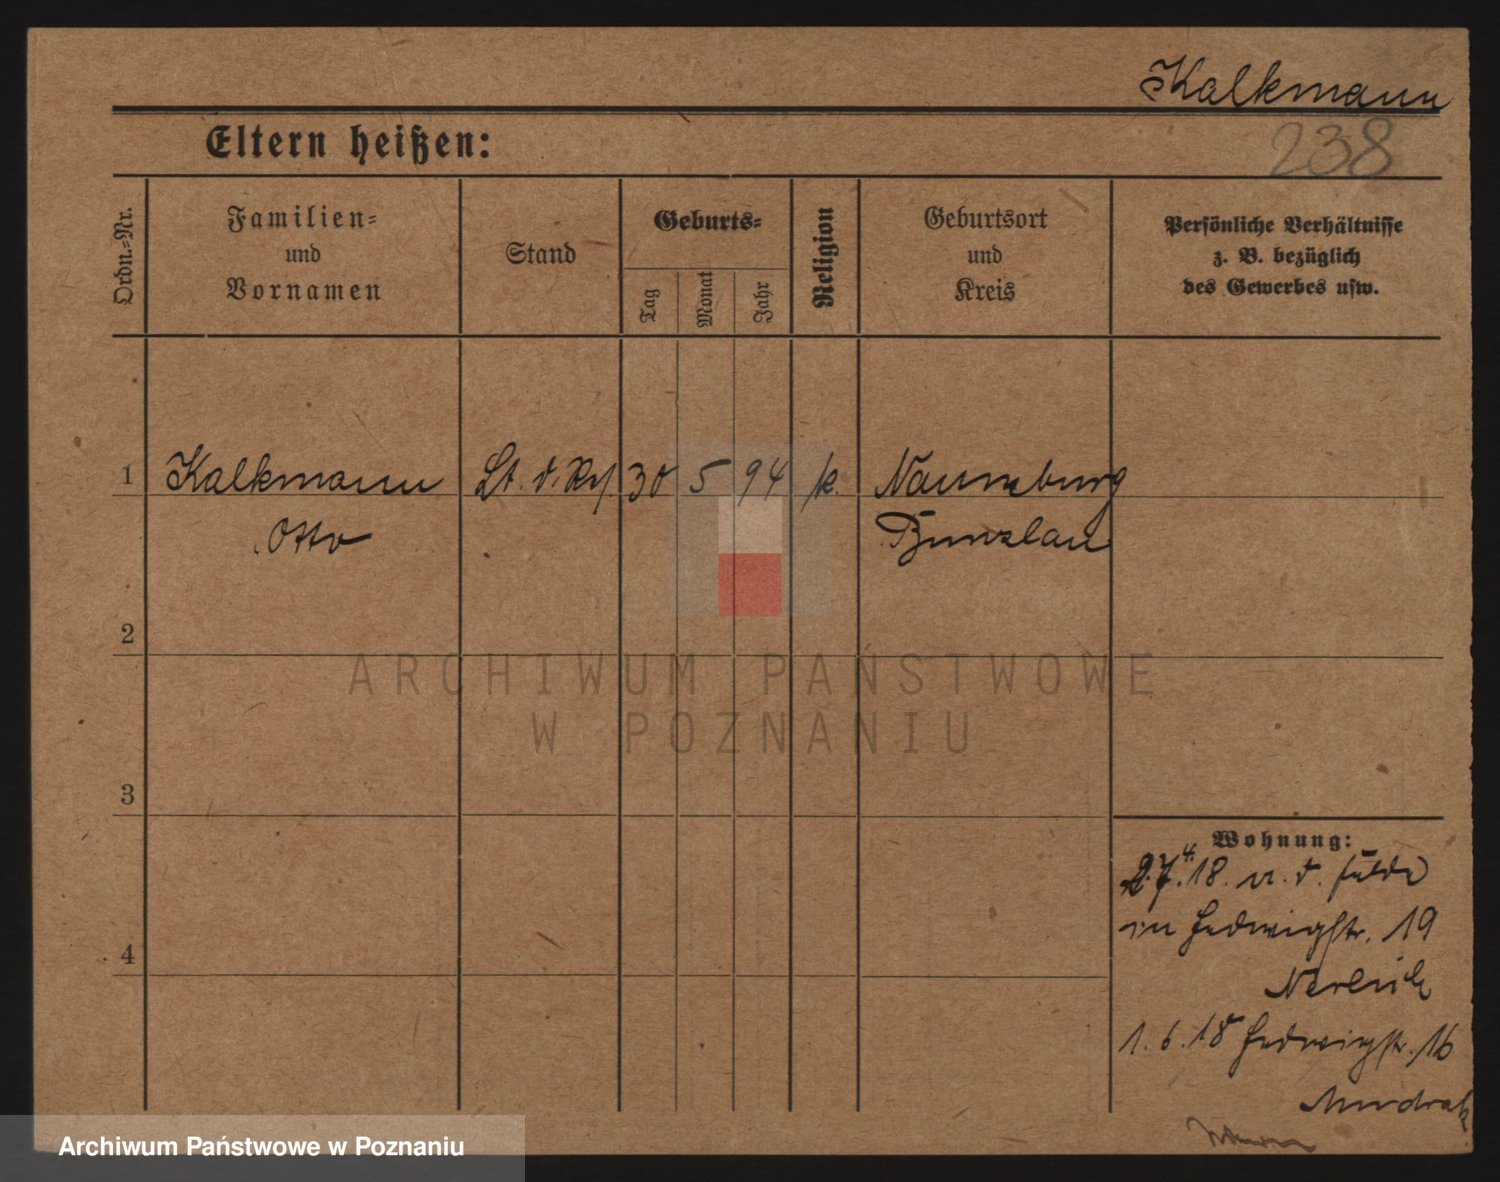 Kalkmann
238
Eltern heißen:
Ordn.-Nr.
Familien-
und
Vornamen
Stand
Geburts-
Tag
Monat
Jahr
Religion
Geburtsort
und
Kreis
Persönliche Verhältnisse
z. B. bezüglich
des Gewerbes usw.
1 Kalkmann Lt. d. Rs. 30 5 94 k. Naumburg
Otto Bunzlau
2
ARCHIWUM PAŃSTWOWE
W POZNANIU
3
Wohnung:
27.4.18. v. d. Felde
in Hedwigstr. 19
4
1.6.18 Hedwigstr. 16
Archiwum Państwowe w Poznaniu